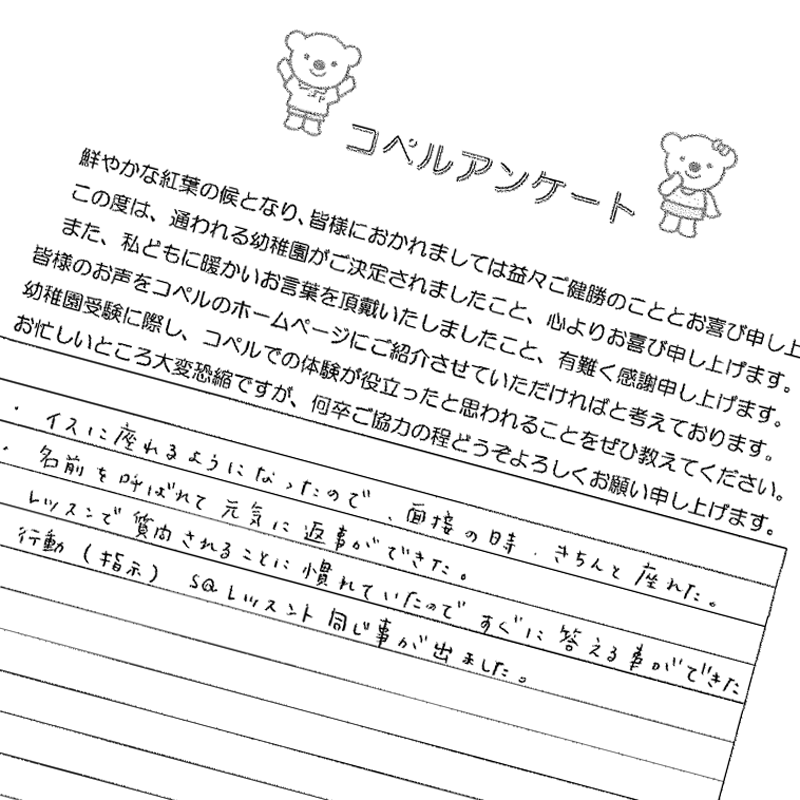 コペルアンケート
鮮やかな紅葉の候となり、皆様におかれましては益々ご健勝のこととお喜び申し上
この度は、通われる幼稚園がご決定されましたこと、心よりお喜び申し上げます。
また、私どもに暖かいお言葉を頂戴いたしましたこと、有難く感謝申し上げます。
皆様のお声をコペルのホームページにご紹介させていただければと考えております。
幼稚園受験に際し、コペルでの体験が役立ったと思われることをぜひ教えてください。
お忙しいところ大変恐縮ですが、何卒ご協力の程どうぞよろしくお願い申し上げます。
・イスに座れるようになったので、面接の時、きちんと座れた。
・名前を呼ばれて元気に返事ができた。
レッスンで質問されることに慣れていたのですぐに答える事ができた
行動（指示） SQレッスント同じ事が出ました。